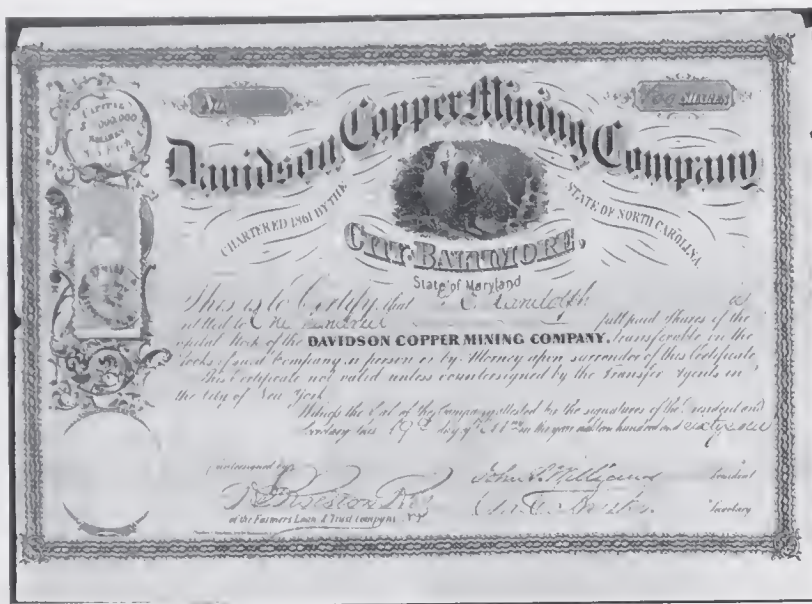 CAPITAL
$1,000,000
SHARES
No.
100 SHARES
Davidson Copper Mining Company
CHARTERED 1861 BY THE
STATE OF NORTH CAROLINA
CITY BALTIMORE,
State of Maryland
This is to Certify, that Randolph is
entitled to One Hundred full paid Shares of the
Capital Stock of the DAVIDSON COPPER MINING COMPANY, transferable in the
Books of said Company in person or by Attorney upon surrender of this Certificate
This Certificate not valid unless countersigned by the Transfer Agents in
the City of New York
Witness the Seal of the Company attested by the signatures of the President and
Secretary this 19th day of in the year eighteen hundred and
Countersigned by
John Williams President
Secretary
of the Farmers Loan & Trust Company, N.Y.